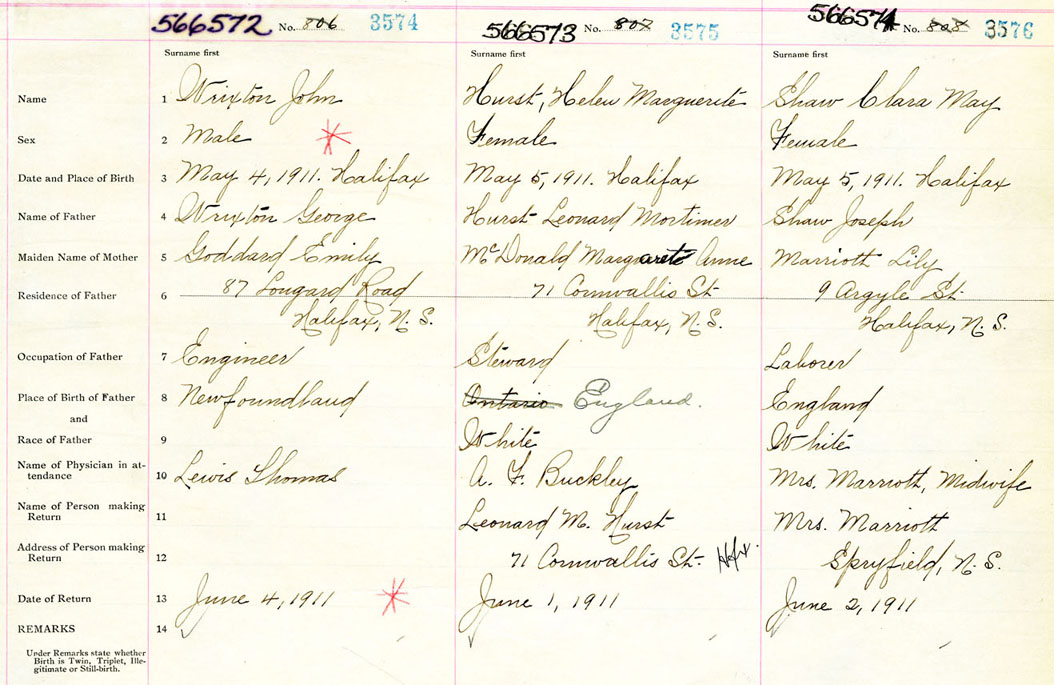 566572 No. 806 3574 566573 No. 807 3575 566574 No. 808 3576
Surname first Surname first Surname first
Name 1 Wrixton John Hurst, Helen Marguerite Shaw Clara May
Sex 2 Male Female Female
Date and Place of Birth 3 May 4, 1911. Halifax May 5, 1911. Halifax May 5, 1911. Halifax
Name of Father 4 Wrixton George Hurst Leonard Mortimer Shaw Joseph
Maiden Name of Mother 5 Goddard Emily McDonald Margarete Anne Marriott Lily
Residence of Father 6 87 Longard Road 71 Cornwallis St. 9 Argyle St.
Halifax, N.S. Halifax, N.S. Halifax, N.S.
Occupation of Father 7 Engineer Steward Laborer
Place of Birth of Father 8 Newfoundland Ontario England. England
and
Race of Father 9 White White
Name of Physician in at-
tendance 10 Lewis Thomas A. F. Buckley Mrs. Marriott, Midwife
Name of Person making
Return 11 Leonard M. Hurst Mrs. Marriott
Address of Person making
Return 12 71 Cornwallis St. Hfx. Spryfield, N.S.
Date of Return 13 June 4, 1911 June 1, 1911 June 2, 1911
REMARKS 14
Under Remarks state whether
Birth is Twin, Triplet, Ille-
gitimate or Still-birth.